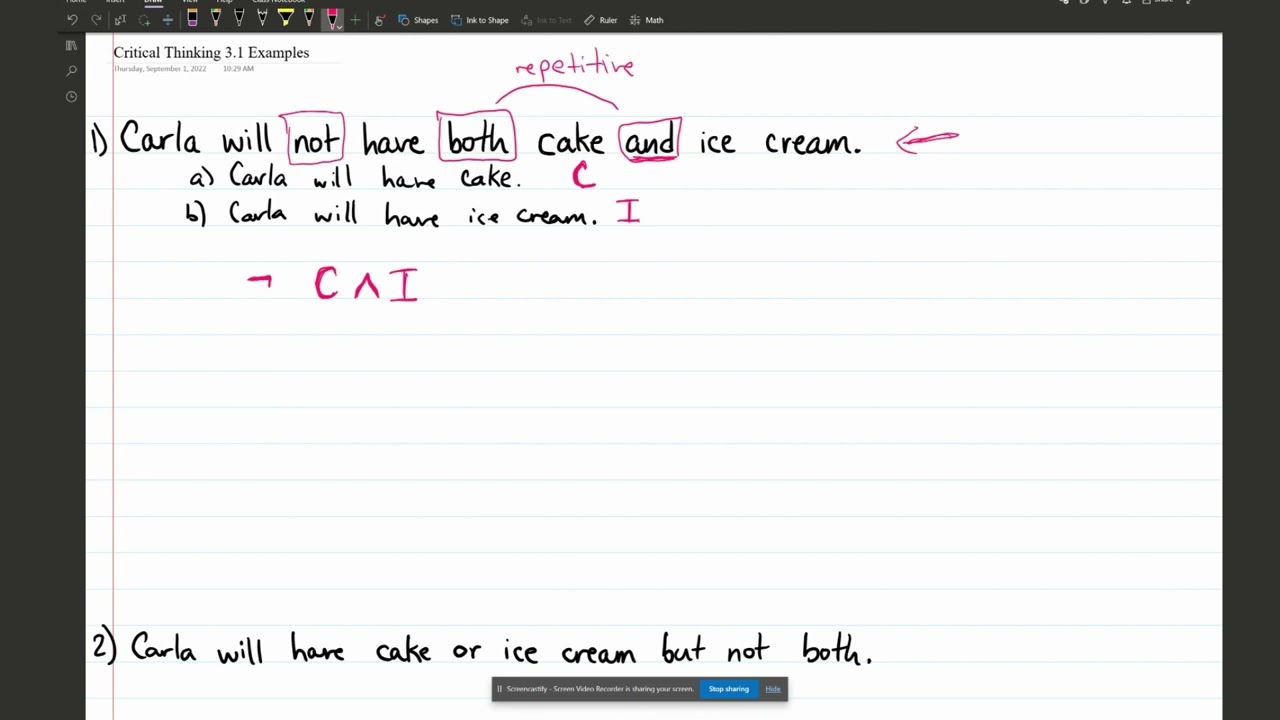 Shapes Ink to Shape Ink to Text Ruler Math
Critical Thinking 3.1 Examples
Thursday, September 1, 2022 10:29 AM
repetitive
1) Carla will not have both cake and ice cream.
a) Carla will have cake. C
b) Carla will have ice cream. I
¬ C ∧ I
2) Carla will have cake or ice cream but not both.
Screencastify - Screen Video Recorder is sharing your screen. Stop sharing Hide